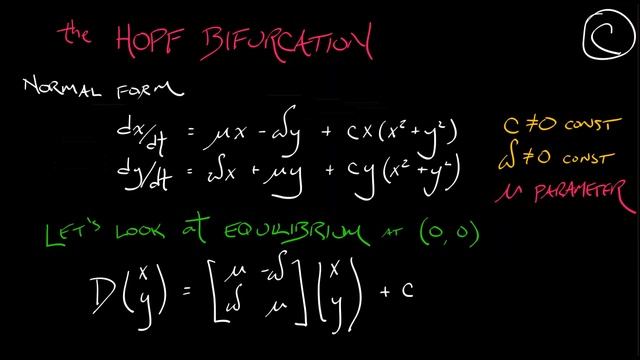 the HOPF BIFURCATION
C
NORMAL FORM
dx/dt = μx - ωy + cx(x² + y²)
dy/dt = ωx + μy + cy(x² + y²)
c ≠ 0 CONST
ω ≠ 0 CONST
μ PARAMETER
LET'S LOOK at EQUILIBRIUM AT (0, 0)
D(x y) = [μ -ω ω μ](x y) + c